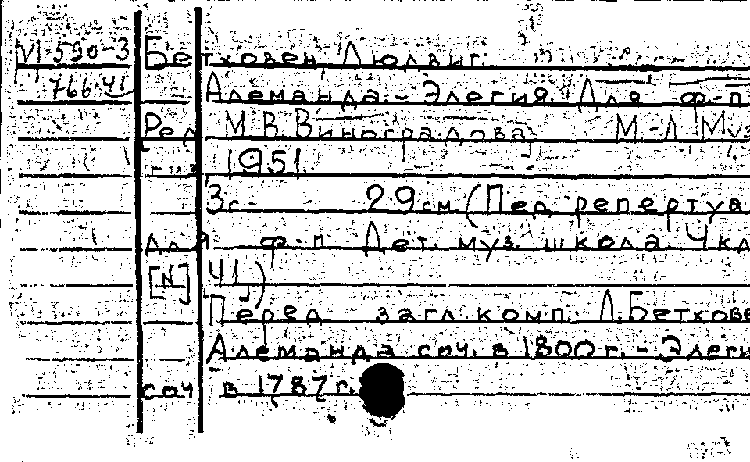 М-590-3 Бетховен, Людвиг.
766-41 Алеманда.- Элегия. Для ф-п
Ред М.В.Виноградова М.-Л. Муз
1951
3с. 29см (Пед репертуа
для ф-п Дет. муз. школа 4кл
[N 41])
Перед загл. комп. Л.Бетхове
Алеманда соч. в 1800г. - Элеги
соч в 1787г.